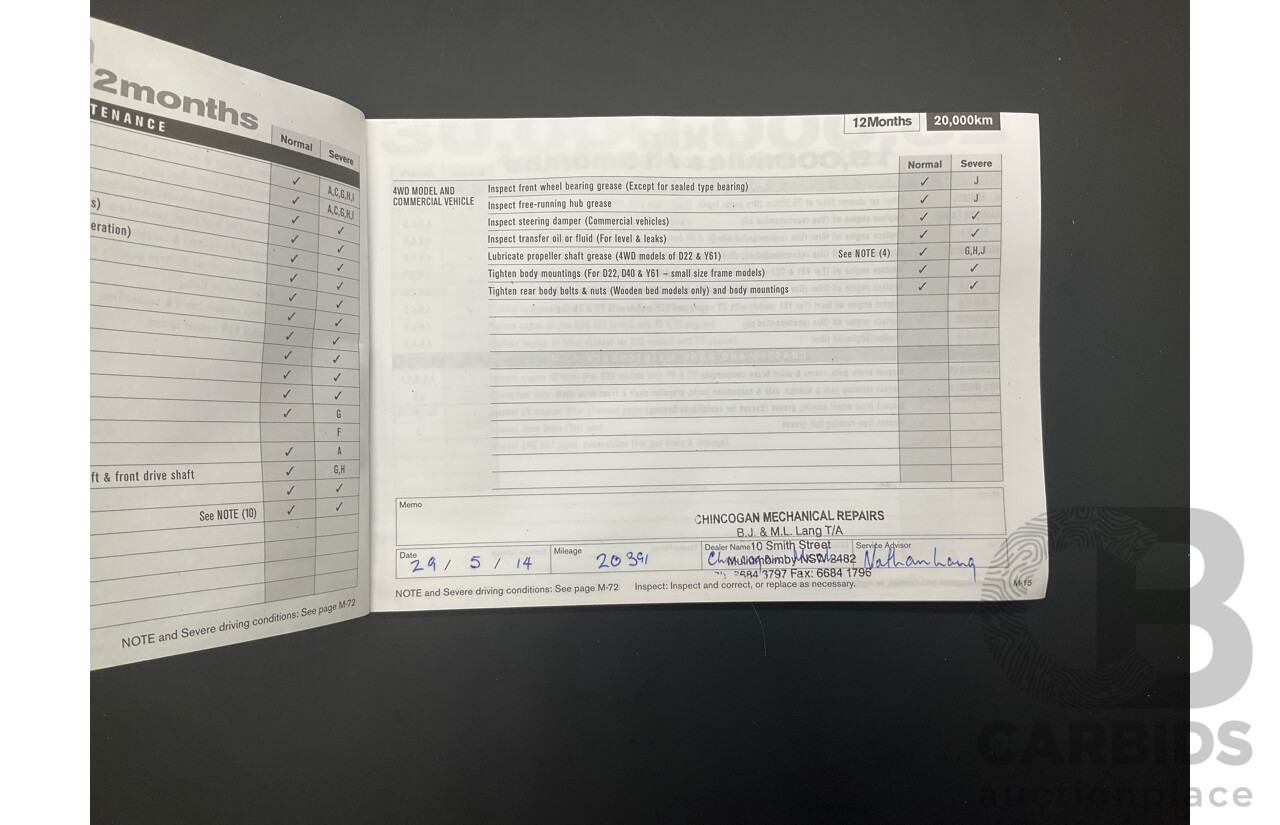 2months
TENANCE
Normal Severe
✓ A,C,G,H,I
s) ✓ A,C,G,H,I
eration) ✓ ✓
✓ ✓
✓ ✓
✓ ✓
✓ ✓
✓ ✓
✓ ✓
✓ ✓
✓ ✓
✓ ✓
✓ G
F
✓ A
ft & front drive shaft ✓ G,H
✓ ✓
See NOTE (10) ✓ ✓
NOTE and Severe driving conditions: See page M-72
12Months 20,000km
Normal Severe
4WD MODEL AND
COMMERCIAL VEHICLE
Inspect front wheel bearing grease (Except for sealed type bearing) ✓ J
Inspect free-running hub grease ✓ J
Inspect steering damper (Commercial vehicles) ✓ ✓
Inspect transfer oil or fluid (For level & leaks) ✓ ✓
Lubricate propeller shaft grease (4WD models of D22 & Y61) See NOTE (4) ✓ G,H,J
Tighten body mountings (For D22, D40 & Y61 – small size frame models) ✓ ✓
Tighten rear body bolts & nuts (Wooden bed models only) and body mountings ✓ ✓
Memo
CHINCOGAN MECHANICAL REPAIRS
B.J. & M.L. Lang T/A
10 Smith Street
Mullumbimby NSW 2482
6684 3797 Fax: 6684 1796
Date 29 / 5 / 14
Mileage 20391
Dealer Name
Service Advisor Nathan Lang
NOTE and Severe driving conditions: See page M-72 Inspect: Inspect and correct, or replace as necessary.
M-15
CB
CARBIDS
auctionplace